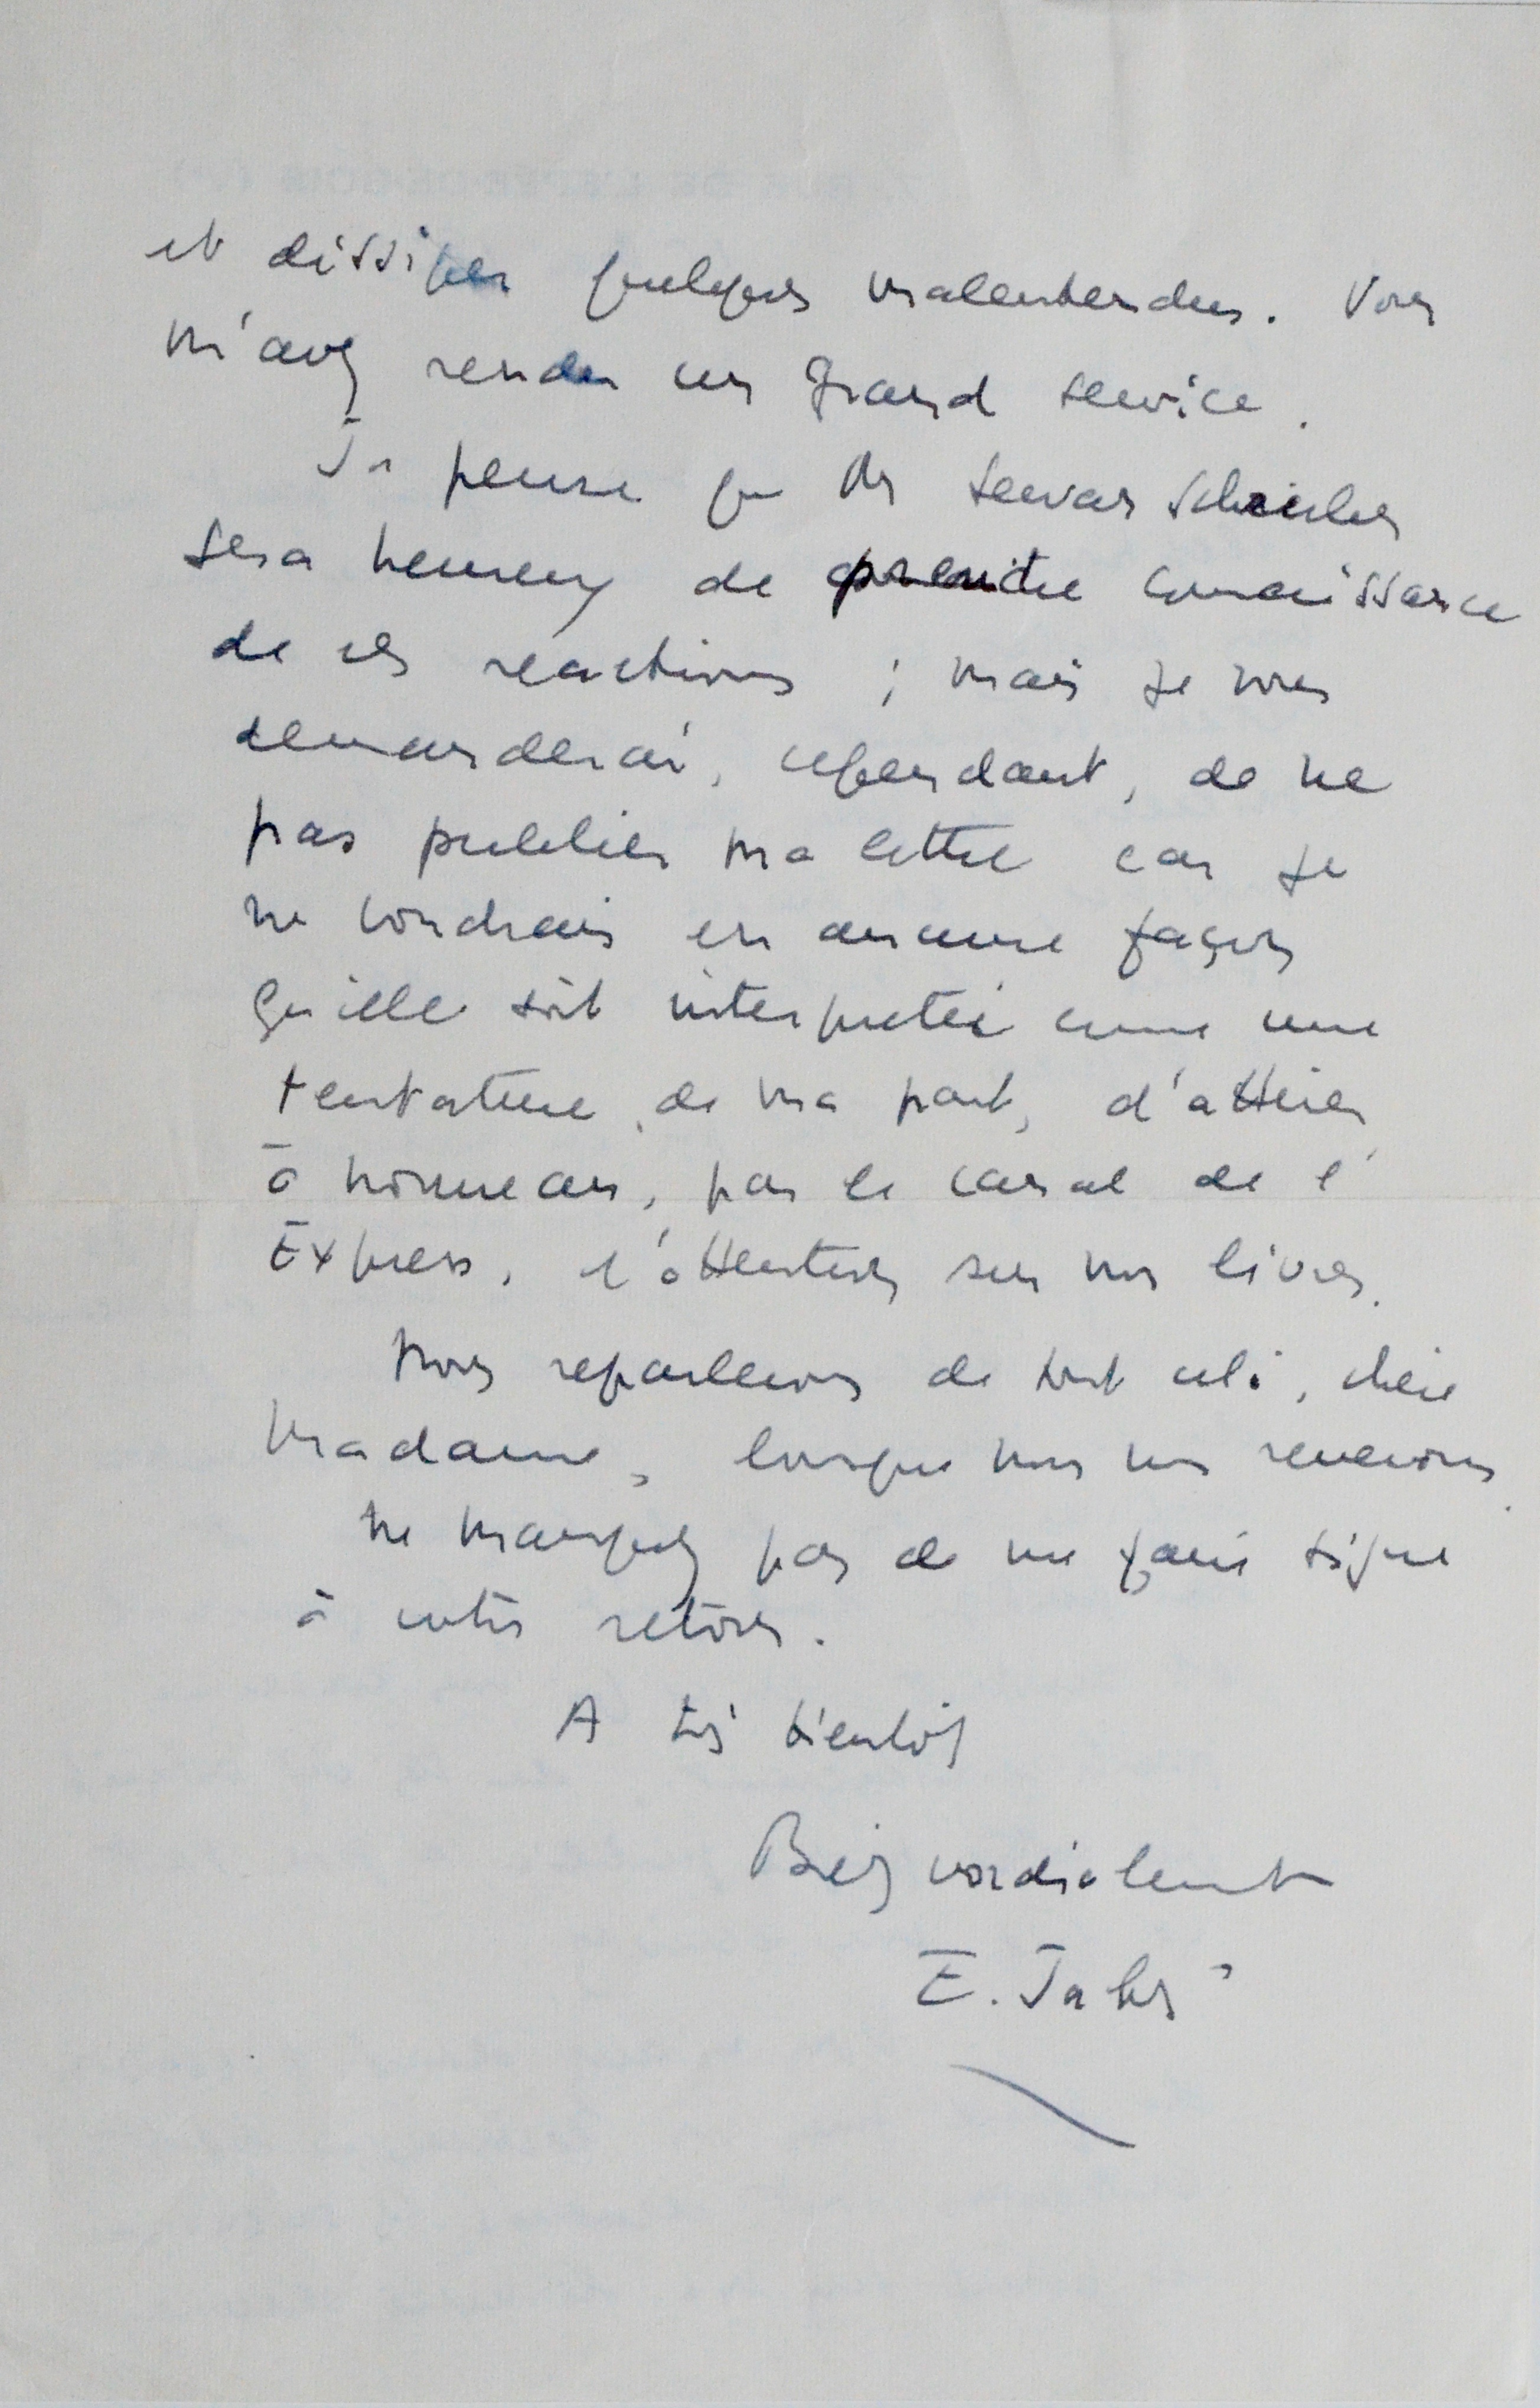 et dissiper quelques malentendus. Vous
m'avez rendu un grand service.
Je pense que Mr Servan Schreiber
sera heureux de prendre connaissance
de ces reactions ; mais je vous
demanderai, cependant, de ne
pas publier ma lettre car je
ne voudrais en aucune façon
qu'elle soit interpretée comme une
tentative, de ma part, d'attirer
à nouveau, par le canal de l'
Express, l'attention sur mes livres.
Nous reparlerons de tout cela, chère
Madame, lorsque nous nous reverrons.
Ne manquez pas de me faire signe
à votre retour.
A très bientôt
Bien cordialement
E. Jabès